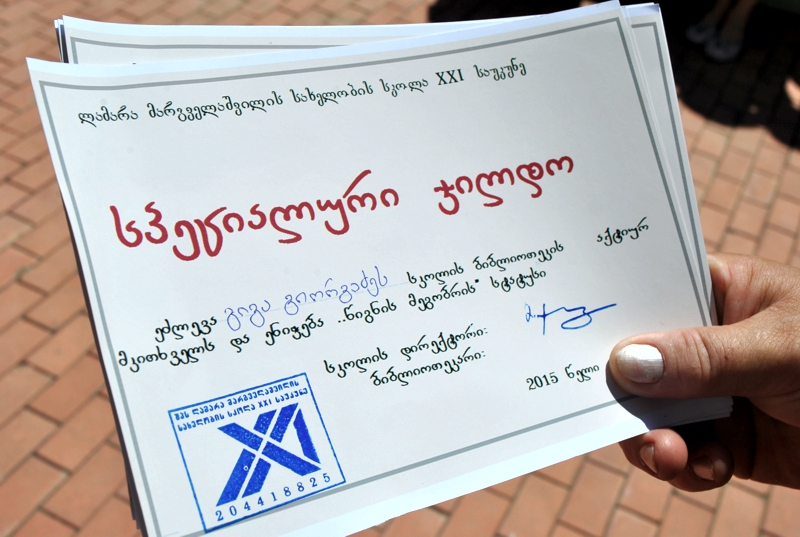 ლამარა მარგველაშვილის სახელობის სკოლა XXI საუკუნე
სპეციალური ჯილდო
ეძლევა გიგა გიორგაძეს სკოლის ბიბლიოთეკის აქტიურ
მკითხველს და ენიჭება ,,წიგნის მეგობრის" სტატუსი
სკოლის დირექტორი:
ბიბლიოთეკარი:
2015 წელი
შპს ლამარა მარგველაშვილის
სახელობის სკოლა XXI საუკუნე
XXI
204418825